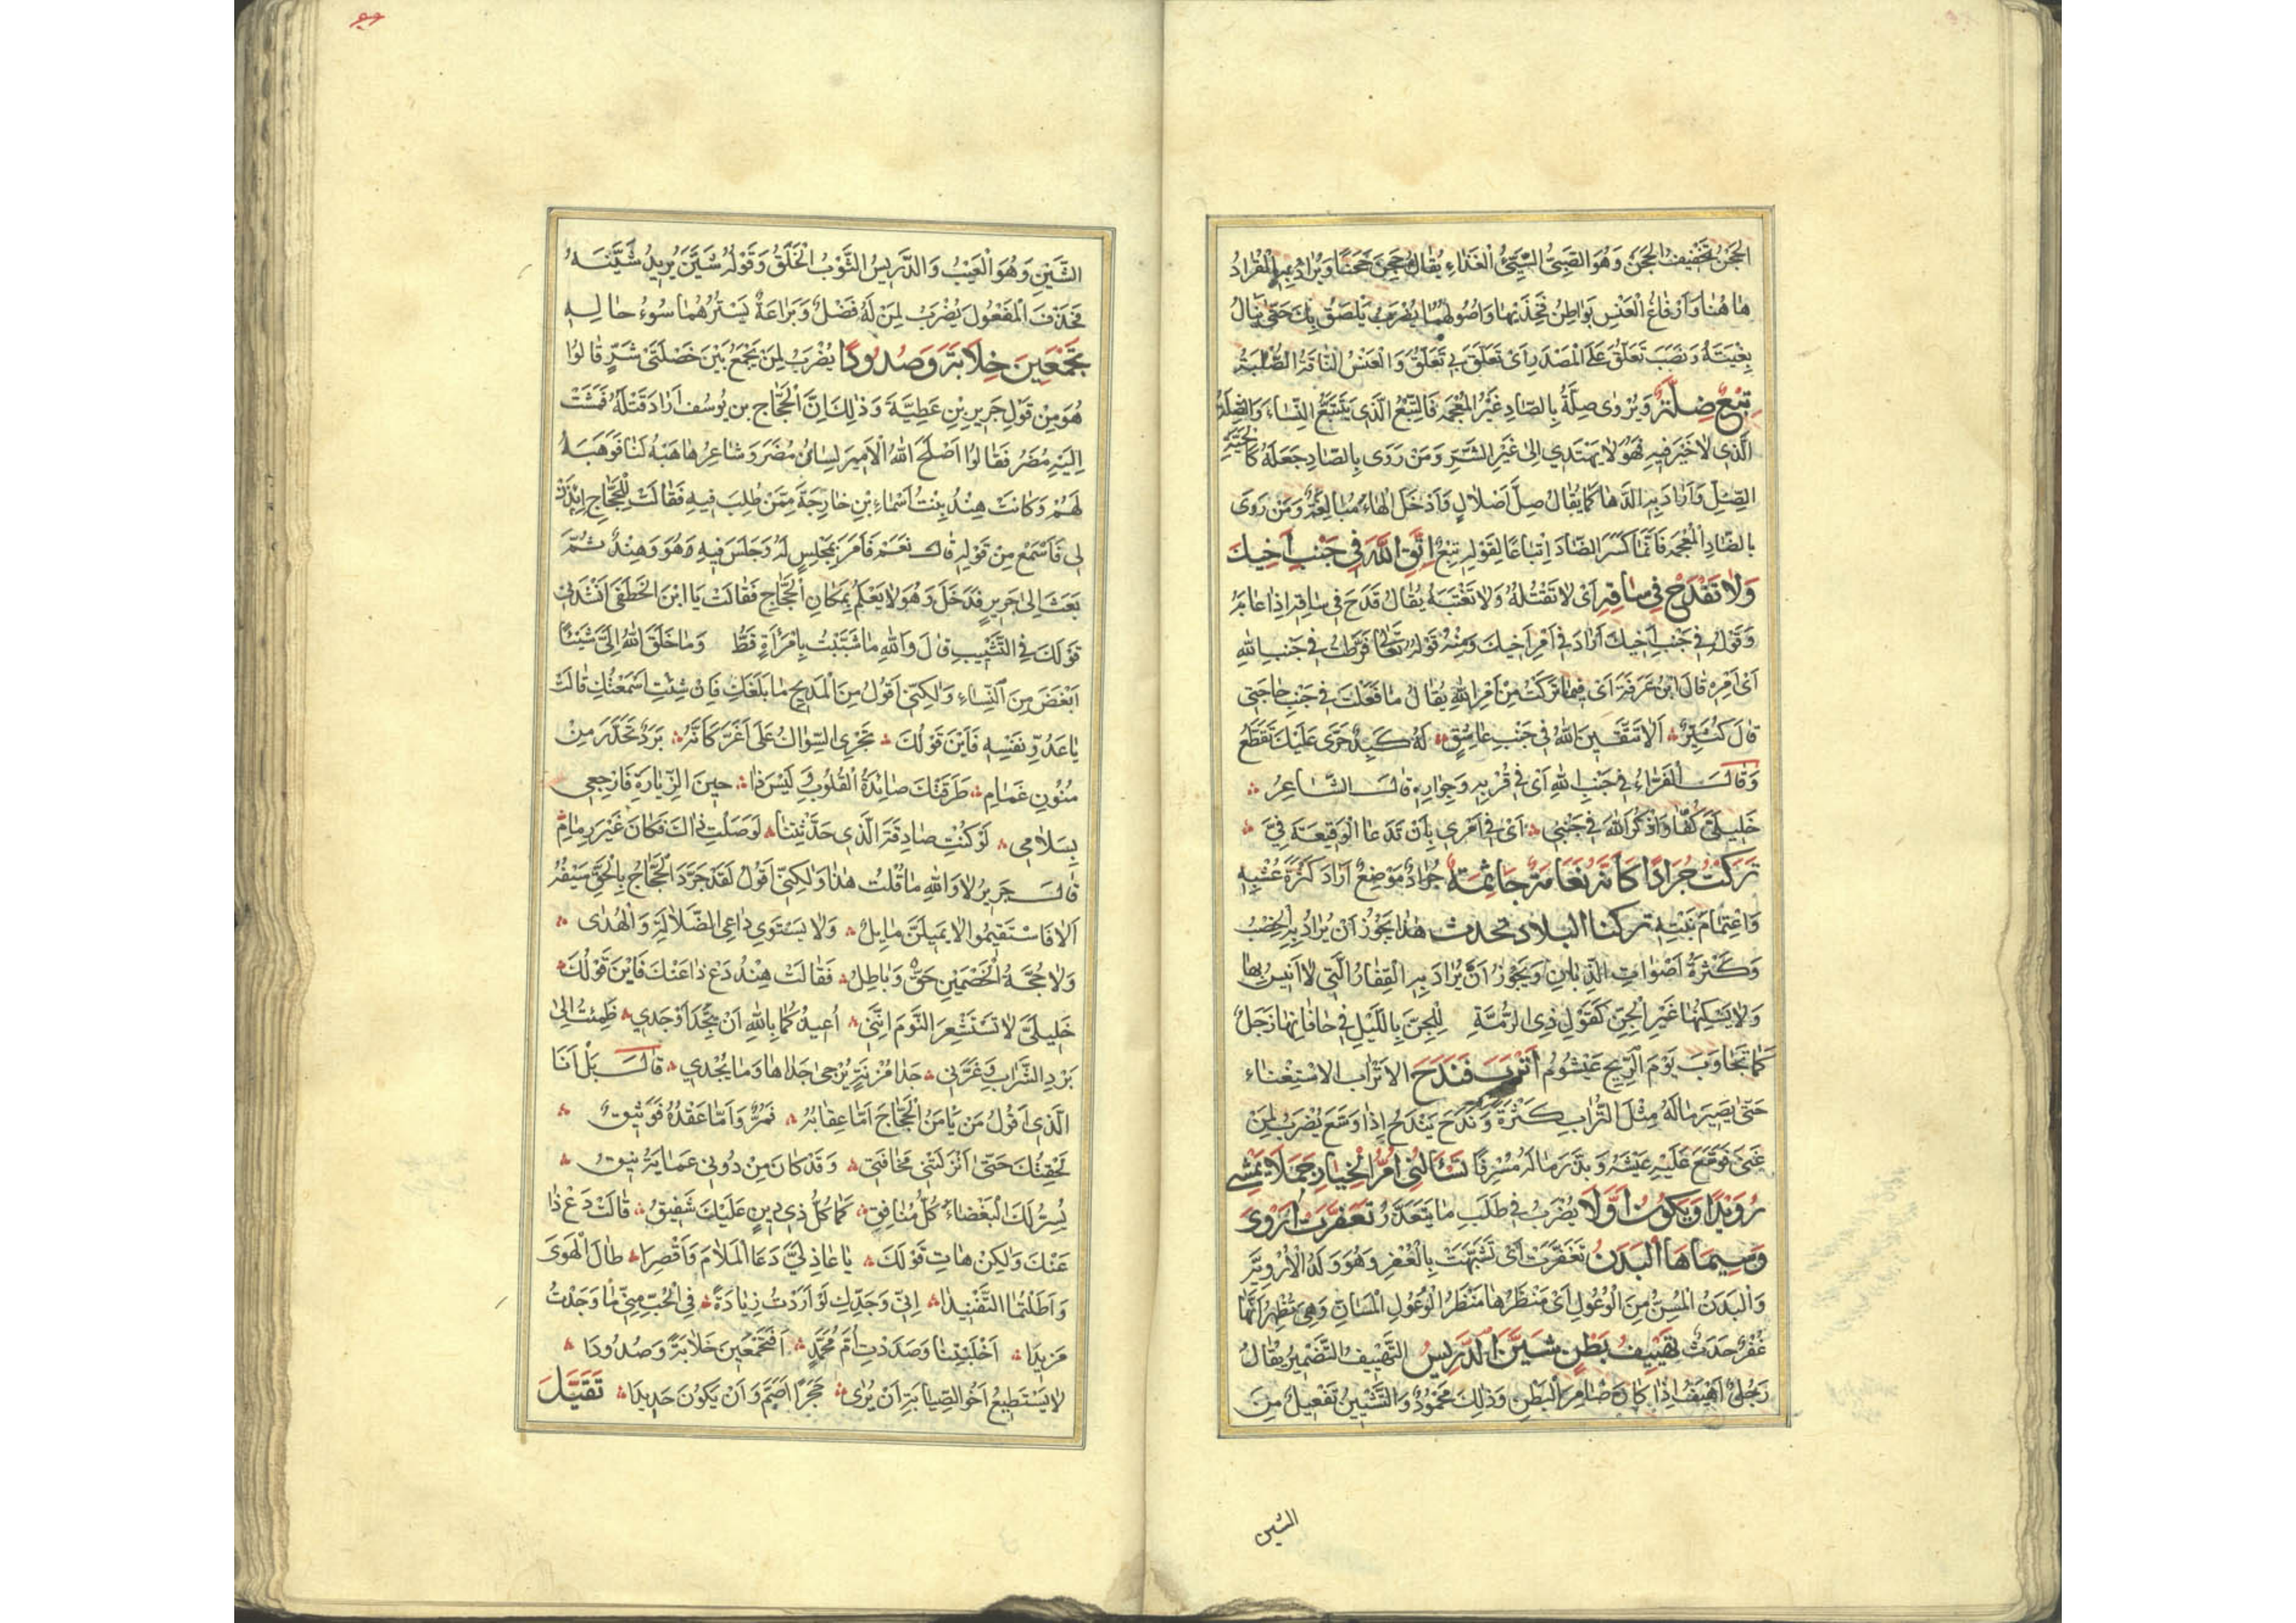 الحَجْنُ تَخْفِيفُ الحَجِنِ وَهُوَ الصَّبِيُّ السَّيِّئُ الْغَذَاءِ يُقَالُ حَجِنَ حَجَنًا وَيُرَادُ بِهِ الْقُرَادُ
هَاهُنَا وَاَرْفَاغُ الْعَنْسِ بَوَاطِنُ فَخِذَيْهَا وَاُصُولُهُمَا يُضْرَبُ لِمَنْ يَلْصَقُ بِكَ حَتَّى يَنَالَ
بِغْيَتَهُ وَنَصَبَ تَعَلُّقَ عَلَى الْمَصْدَرِ اَىْ تَعَلَّقَ بِى تَعَلُّقَ وَالْعَنْسُ النَّاقَةُ الصُّلْبَةُ
تِبْعُ ضِلَّةٍ وَيُرْوٰى صِلَّةُ بِالصَّادِ غَيْرُ الْمُعْجَمَةِ فَالتِّبْعُ الَّذِى يَتْبَعُ النِّسَاءَ وَالضِّلَّةُ
الَّذِى لاَ خَيْرَ فِيهِ فَهُوَ لاَ يَهْتَدِي اِلىٰ غَيْرِ الشَّرِّ وَمَنْ رَوَى بِالصَّادِ جَعَلَهُ كَالْحَيَّةِ
الصِّلِّ وَاَرَادَ بِهِ الدَّهَا كَمَا يُقَالُ صِلُّ اَصْلاَلٍ وَاَدْخَلَ الْهَاءَ مُبَالَغَةً وَمَنْ رَوَى
بِالضَّادِ الْمُعْجَمَةِ فَاِنَّمَا كَسَرَ الضَّادَ اِتْبَاعًا لِقَوْلِهِ تِبْعُ اِتَّقِ اللّٰهَ فِى جَنْبِ اَخِيكَ
وَلاَ تَقْدَحْ فِى سَاقِهِ اَىْ لاَ تَقْتُلْهُ وَلاَ تَغْتَبْهُ يُقَالُ قَدَحَ فِى سَاقِهِ اِذَا عَابَهُ
وَقَوْلُهُ فِى جَنْبِ اَخِيكَ اَرَادَ فِى اَمْرِ اَخِيكَ وَمِنْهُ قَوْلُهُ تَعَالىٰ فَرَّطْتُ فِى جَنْبِ اللّٰهِ
اَىْ اَمْرِهِ قَالَ ابْنُ عَرَفَةَ اَىْ فِيمَا تَرَكْتُ مِنْ اَمْرِ اللّٰهِ يُقَالُ مَا فَعَلْتَ فِى جَنْبِ حَاجَتِى
قَالَ كُثَيِّرٌ اَلاَ تَتَّقِينَ اللّٰهَ فِى جَنْبِ عَاشِقٍ لَهُ كَبِدٌ حَرَّى عَلَيْكَ تَقَطَّعُ
وَقَالَ الْفَرَّاءُ فِى جَنْبِ اللّٰهِ اَىْ فِى قُرْبِهِ وَجِوَارِهِ قَالَ الشَّاعِرُ
خَلِيلَىَّ كُفَّا وَاذْكُرَا اللّٰهَ فِى جَنْبِى اَىْ فِى اَمْرِى بِاَنْ تَدَعَا الْوَقِيعَةَ فِىَّ
تَرَكْتُ جُرَادًا كَاَنَّهَ نَعَامَةٌ جَاثِمَةٌ جُرَادُ مَوْضِعٌ اَرَادَ كَثْرَةَ عُشْبِهِ
وَاعْتِمَامَ نَبْتِهِ تركنا البلاد تحدث هٰذَا يَجُوزُ اَنْ يُرَادَ بِهِ الْخِصْبُ
وَكَثْرَةُ اَصْوَاتِ الذِّبَانِ وَيَجُوزُ اَنْ يُرَادَ بِهِ الْقِفَارُ الَّتِى لاَ اَنِيسَ بِهَا
وَلاَ يَسْكِنُهَا غَيْرُ الْجِنِّ كَقَوْلِ ذِى الرُّمَّةِ لِلْجِنِّ بِاللَّيْلِ فِى حَافَاتِهَا زَجَلٌ
كَمَا تَجَاوَبَ يَوْمَ الرِّيحِ عَيْشُومُ اَتْرَبَ فَنَدَحَ الاَتْرَابُ الاِسْتِغْنَاءُ
حَتّىٰ يَصِيرَ مَالَهُ مِثْلَ التُّرَابِ كَثْرَةً وَنَدَحَ يَنْدَحُ اِذَا وَسَّعَ يُضْرَبُ لِمَنْ
غَنِىَ فَوَسَّعَ عَلَيْهِ عَيْشَهُ وَبَذَّرَ مَالَهُ مُسْرِفًا تَسْئَالُنِى اُمُّ الْخِيَارِ جَمَلاً يَمْشِى
رُوَيْدًا وَيَكُونُ اَوَّلاَ يُضْرَبُ فِى طَلَبِ مَا يَتَعَذَّرُ تَغَفَّرَتْ اَرْوَى
وَسِيمَاهَا الْبَدَنُ تَغَفَّرَتْ اَىْ تَشَبَّهَتْ بِالْغُفْرِ وَهُوَ وَلَدُ الْاُرْوِيَّةِ
وَالْبَدَنُ الْمُسِنُّ مِنَ الْوُعُولِ اَىْ مَنْظَرُهَا مَنْظَرُ الْوُعُولِ الْمَسَانِّ وَهِىَ تُظْهِرُ اَنَّهَا
غُفْرٌ حَدَثٌ تَهْيِيفُ بَطْنٍ شَيَّنَ الدَّرِيسُ التَّهْيِيفُ التَّضْمِيرُ يُقَالُ
رَجُلٌ اَهْيَفُ اِذَا كَانَ ضَامِرَ الْبَطْنِ وَذٰلِكَ مَحْمُودٌ وَالتَّشْيِينُ تَفْعِيلٌ مِنَ
الشين
الشَّيْنِ وَهُوَ الْعَيْبُ وَالدَّرِيسُ الثَّوْبُ الْخَلَقُ وَقَوْلُهُ شَيَّنَ يُرِيدُ شَيَّنَهُ
فَحَذَفَ الْمَفْعُولَ يُضْرَبُ لِمَنْ لَهُ فَضْلٌ وَبَرَاعَةٌ يَسْتُرُهُمَا سُوءُ حَالِهِ
تَجْمَعِينَ خِلاَبَةً وَصُدُودًا يُضْرَبُ لِمَنْ يَجْمَعُ بَيْنَ خَصْلَتَىْ شَرٍّ قَالُوا
هُوَ مِنْ قَوْلِ جَرِيرِ بْنِ عَطِيَّةَ وَذٰلِكَ اَنَّ الْحَجَّاجَ بن يُوسُفَ اَرَادَ قَتْلَهُ فَمَشَتْ
اِلَيْهِ مُضَرُ فَقَالُوا اَصْلَحَ اللّٰهُ الْاَمِيرَ لِسَانُ مُضَرَ وَشَاعِرُهَا هَبْهُ لَنَا فَوَهَبَهُ
لَهُمْ وَكَانَتْ هِنْدُ بِنْتُ اَسْمَاءِ بْنِ خَارِجَةَ مِمَّنْ طَلَبَ فِيهِ فَقَالَتْ لِلْحَجَّاجِ اِئْذَنْ
لِى فَاَسْمَعُ مِنْ قَوْلِهِ قَالَ نَعَمْ فَاَمَرَ بِمَجْلِسٍ لَهُ وَجَلَسَ فِيهِ وَهُوَ وَهِنْدٌ ثُمَّ
بَعَثَ اِلىٰ جَرِيرٍ فَدَخَلَ وَهُوَ لاَ يَعْلَمُ بِمَكَانِ الْحَجَّاجِ فَقَالَتْ يَا ابْنَ الْخَطَفَى اَنْشِدْنِى
قَوْلَكَ فِى التَّشْبِيبِ قَالَ وَاللّٰهِ مَا شَبَّبْتُ بِامْرَأَةٍ قَطُّ وَمَا خَلَقَ اللّٰهُ اِلَىَّ شَيْئًا
اَبْغَضَ مِنَ النِّسَاءِ وَلٰكِنِّى اَقُولُ مِنَ الْمَدِيحِ مَا بَلَغَكَ فَاِنْ شِئْتِ اَسْمَعْتُكِ قَالَتْ
يَا عَدُوَّ نَفْسِهِ فَاَيْنَ قَوْلُكَ تُجْرِى السِّوَاكَ عَلَى اَغَرَّ كَاَنَّهُ بَرَدٌ تَحَدَّرَ مِنْ
مُتُونِ غَمَامِ طَرَقَتْكَ صَائِدَةُ الْقُلُوبِ وَ لَيْسَ ذَا حِينَ الزِّيَارَةِ فَارْجِعِى
بِسَلاَمِى لَوْ كُنْتِ صَادِقَةَ الَّذِى حَدَّثْتِنَا لَوَصَلْتِ ذَاكَ فَكَانَ غَيْرَ رِمَامِ
قَالَ جَرِيرٌ لاَ وَاللّٰهِ مَا قُلْتُ هٰذَا وَلٰكِنِّى اَقُولُ لَقَدْ جَرَّدَ الْحَجَّاجُ بِالْحَقِّ سَيْفَهُ
اَلاَ فَاسْتَقِيمُوا لاَ يَمِيلَنَّ مَايِلُ وَلاَ يَسْتَوِى دَاعِى الضَّلاَلَةِ وَالْهُدٰى
وَلاَ حُجَّةُ الْخَصْمَيْنِ حَقٌّ وَبَاطِلُ فَقَالَتْ هِنْدُ دَعْ ذَا عَنْكَ فَاَيْنَ قَوْلُكَ
خَلِيلَىَّ لاَ تَسْتَشْعِرَا النَّوْمَ اِنَّنِى اُعِيذُكُمَا بِاللّٰهِ اَنْ تَجِدَا وَجْدِي ظَمِئْتُ اِلىٰ
بَرْدِ الشَّرَابِ وَغَرَّنِى جَدَا مُزْنَةٍ يُرْجٰى جَدَاهَا وَمَا يُجْدِي قَالَ بَلْ اَنَا
الَّذِى اَقُولُ مَنْ يَأْمَنُ الْحَجَّاجَ اَمَّا عِقَابُهُ فَمُرٌّ وَاَمَّا عَقْدُهُ فَوَثِيقُ
لَحِقْتُكَ حَتّىٰ اَنْزَلَتْنِى مَخَافَتِى وَقَدْ كَانَ مِنْ دُونِى عَمَايَةُ نِيقُ
يُسِرُّ لَكَ الْبَغْضَاءَ كُلُّ مُنَافِقٍ كَمَا كُلُّ ذِى دِينٍ عَلَيْكَ شَفِيقُ قَالَتْ دَعْ ذَا
عَنْكَ وَلٰكِنْ هَاتِ قَوْلَكَ يَا عَاذِلَيَّ دَعَا الْمَلاَمَ وَاَقْصِرَا طَالَ الْهَوَى
وَاَطَلْتُمَا التَّفْنِيدَا اِنِّى وَجَدِّكِ لَوْ اَرَدْتُ زِيَادَةً فِى الْحُبِّ مِنِّى مَا وَجَدْتُ
مَزِيدَا اَخْلَبْتِنَا وَصَدَدْتِ اُمَّ مُحَمَّدٍ اَفَتَجْمَعِينَ خَلاَبَةً وَصُدُودَا
لاَ يَسْتَطِيعُ اَخُو الصِّبَابَةِ اَنْ يُرٰى حَجَرًا اَصَمَّ وَاَنْ يَكُونَ حَدِيدَا تَقَيَّلَ